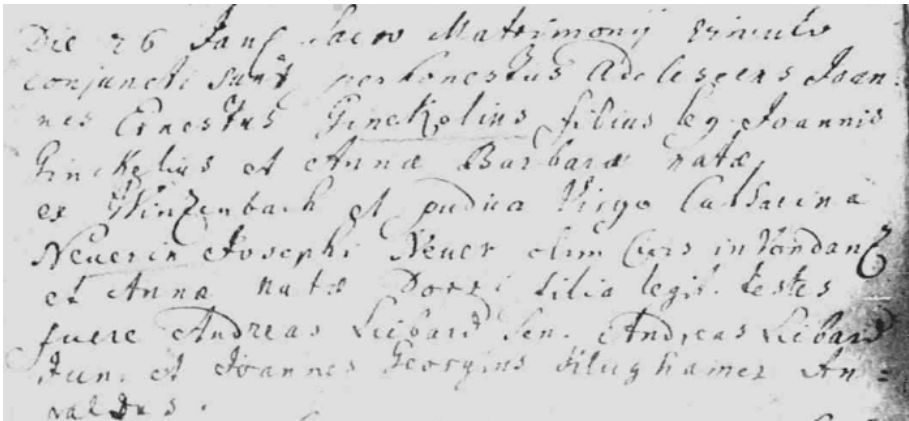 Die 26 Jan sacro Matrimonij vinculo
conjuncti sunt perhonestus Adolescens Joan-
nes Ernestus Ginckelius filius leg Joannis
Ginckelius et Annæ Barbaræ natæ
ex Winzenbach et pudica Virgo Catharina
Neuerin Josephi Neuer olim Civis in
et Annæ natæ filia legit. testes
fuere Andreas Leibard Sen. Andreas Leibard
Jun. et Joannes Georgius An=
waldus.